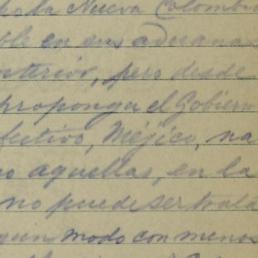 toda Nueva Colombi
ble en sus aduanas
anterior, pero desde
proponga el Gobiern
efectivo, Méjico, na
o aquellas, en la
no puede ser trata
gun modo con menos